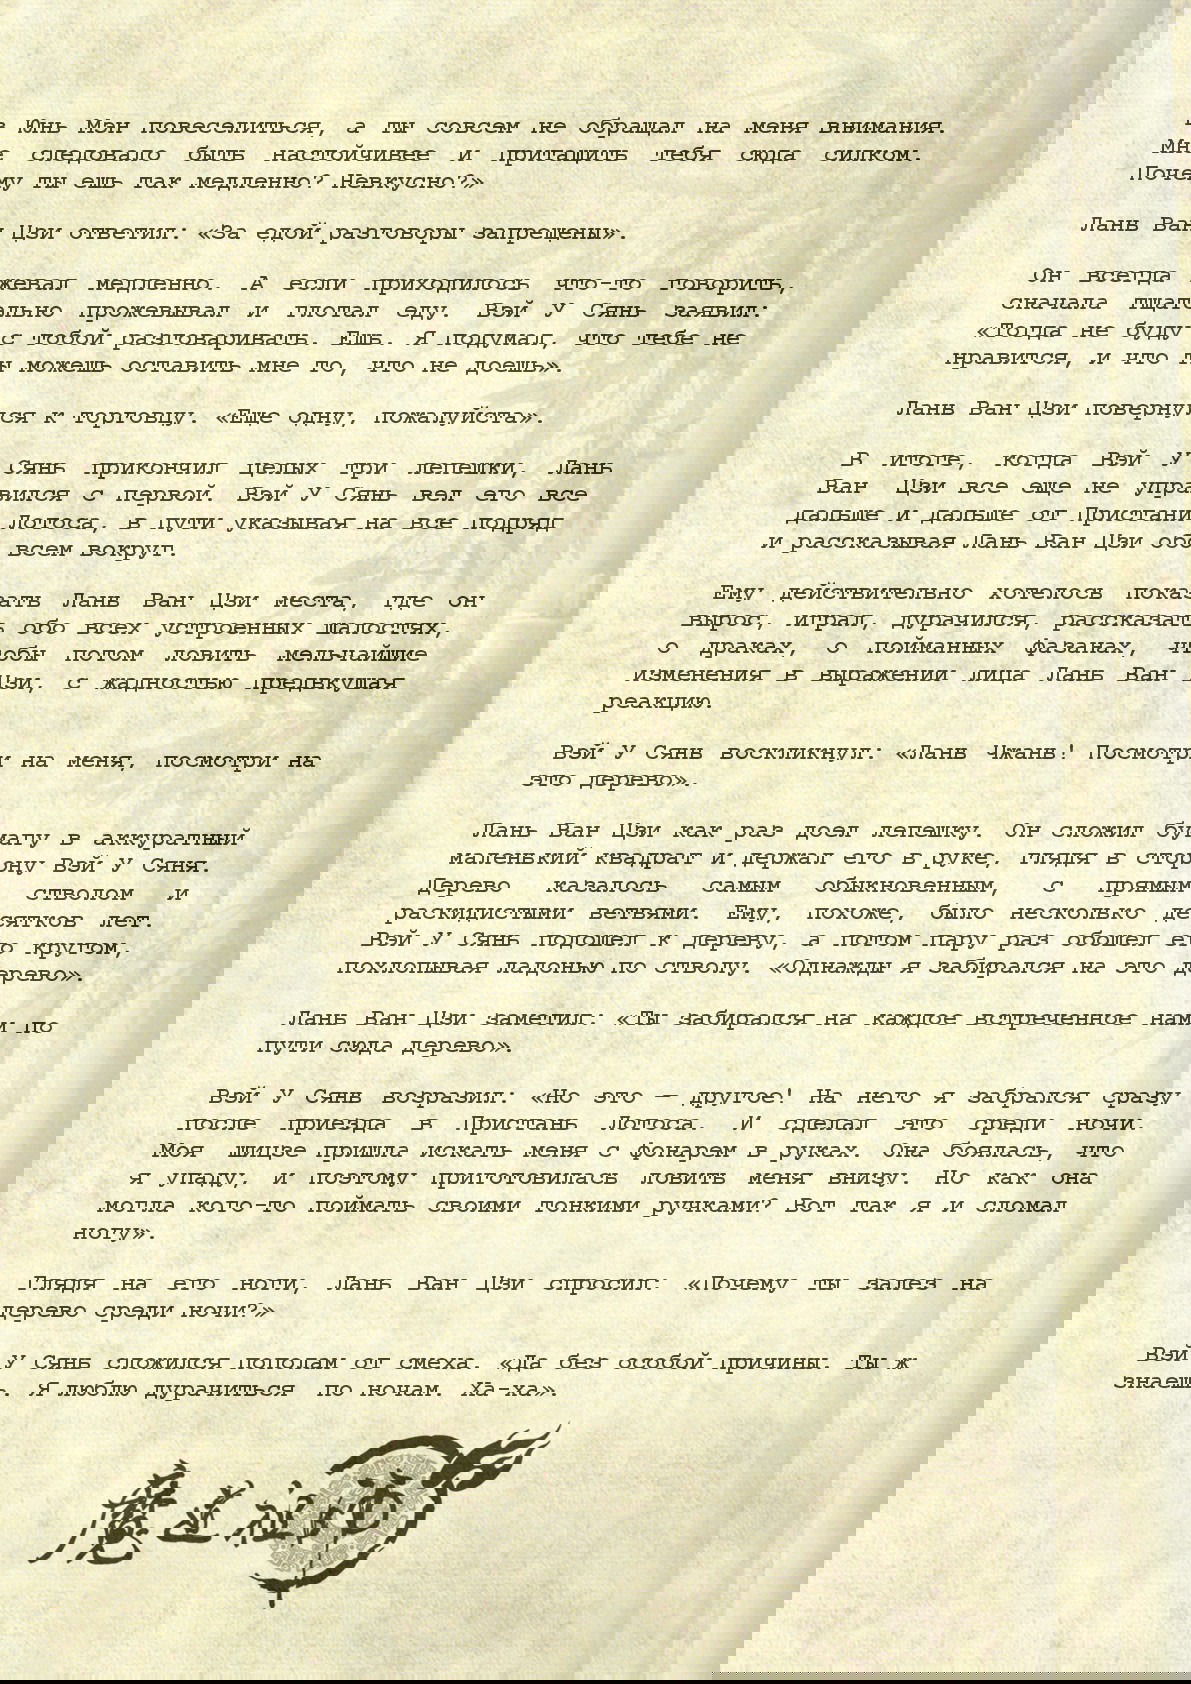 в Юнь Мэн повеселиться, а ты совсем не обращал на меня внимания.
Мне следовало быть настойчивее и притащить тебя сюда силком.
Почему ты ешь так медленно? Невкусно?»
Лань Ван Цзи ответил: «За едой разговоры запрещены».
Он всегда жевал медленно. А если приходилось что-то говорить,
сначала тщательно прожевывал и глотал еду. Вэй У Сянь заявил:
«Тогда не буду с тобой разговаривать. Ешь. Я подумал, что тебе не
нравится, и что ты можешь оставить мне то, что не доешь».
Лань Ван Цзи повернулся к торговцу. «Еще одну, пожалуйста».
В итоге, когда Вэй У Сянь прикончил целых три лепешки, Лань
Ван Цзи все еще не управился с первой. Вэй У Сянь вел его все
дальше и дальше от Пристани Лотоса, в пути указывая на все подряд
и рассказывая Лань Ван Цзи обо всем вокруг.
Ему действительно хотелось показать Лань Ван Цзи места, где он
вырос, играл, дурачился, рассказать обо всех устроенных шалостях,
о драках, о пойманных фазанах, чтобы потом ловить мельчайшие
изменения в выражении лица Лань Ван Цзи, с жадностью предвкушая
реакцию.
Вэй У Сянь воскликнул: «Лань Чжань! Посмотри на меня, посмотри на
это дерево».
Лань Ван Цзи как раз доел лепешку. Он сложил бумагу в аккуратный
маленький квадрат и держал его в руке, глядя в сторону Вэй У Сяня.
Дерево казалось самым обыкновенным, с прямым стволом и
раскидистыми ветвями. Ему, похоже, было несколько десятков лет.
Вэй У Сянь подошел к дереву, а потом пару раз обошел его кругом,
похлопывая ладонью по стволу. «Однажды я забирался на это дерево».
Лань Ван Цзи заметил: «Ты забирался на каждое встреченное нами по
пути сюда дерево».
Вэй У Сянь возразил: «Но это — другое! На него я забрался сразу
после приезда в Пристань Лотоса. И сделал это среди ночи.
Моя шицзе пришла искать меня с фонарем в руках. Она боялась, что
я упаду, и поэтому приготовилась ловить меня внизу. Но как она
могла кого-то поймать своими тонкими ручками? Вот так я и сломал
ногу».
Глядя на его ноги, Лань Ван Цзи спросил: «Почему ты залез на
дерево среди ночи?»
Вэй У Сянь сложился пополам от смеха. «Да без особой причины. Ты ж
знаешь. Я люблю дурачиться по ночам. Ха-ха».